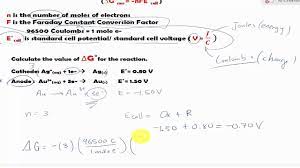 n is the number of moles of electrons
F is the Faraday Constant Conversion Factor
96500 Coulombs = 1 mole e-
E°cell is standard cell potential/ standard cell voltage ( V = J/C )
Joules (energy)
Coulomb (charge)
Calculate the value of ΔG° for the reaction.
Cathode: Ag⁺(aq) + 1e- → Ag(s) E° = 0.80 V
Anode: Au³⁺(aq) + 3e- → Au(s) E° = 1.50 V
Au → Au³⁺ 3e⁻ E = -1.50V
n = 3 Ecell = Ox + R
-1.50 + 0.80 = -0.70V
ΔG = -(3) ( 96500 C / 1 mole e ) (